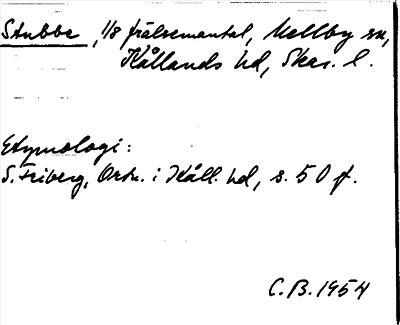 Stubbe, 1/8 frälsemantal, Mellby sn,
Kållands hd, Skar. l.
Etymologi:
S. Friberg, Ortn. i Kåll. hd, s. 50 f.
C.B. 1954